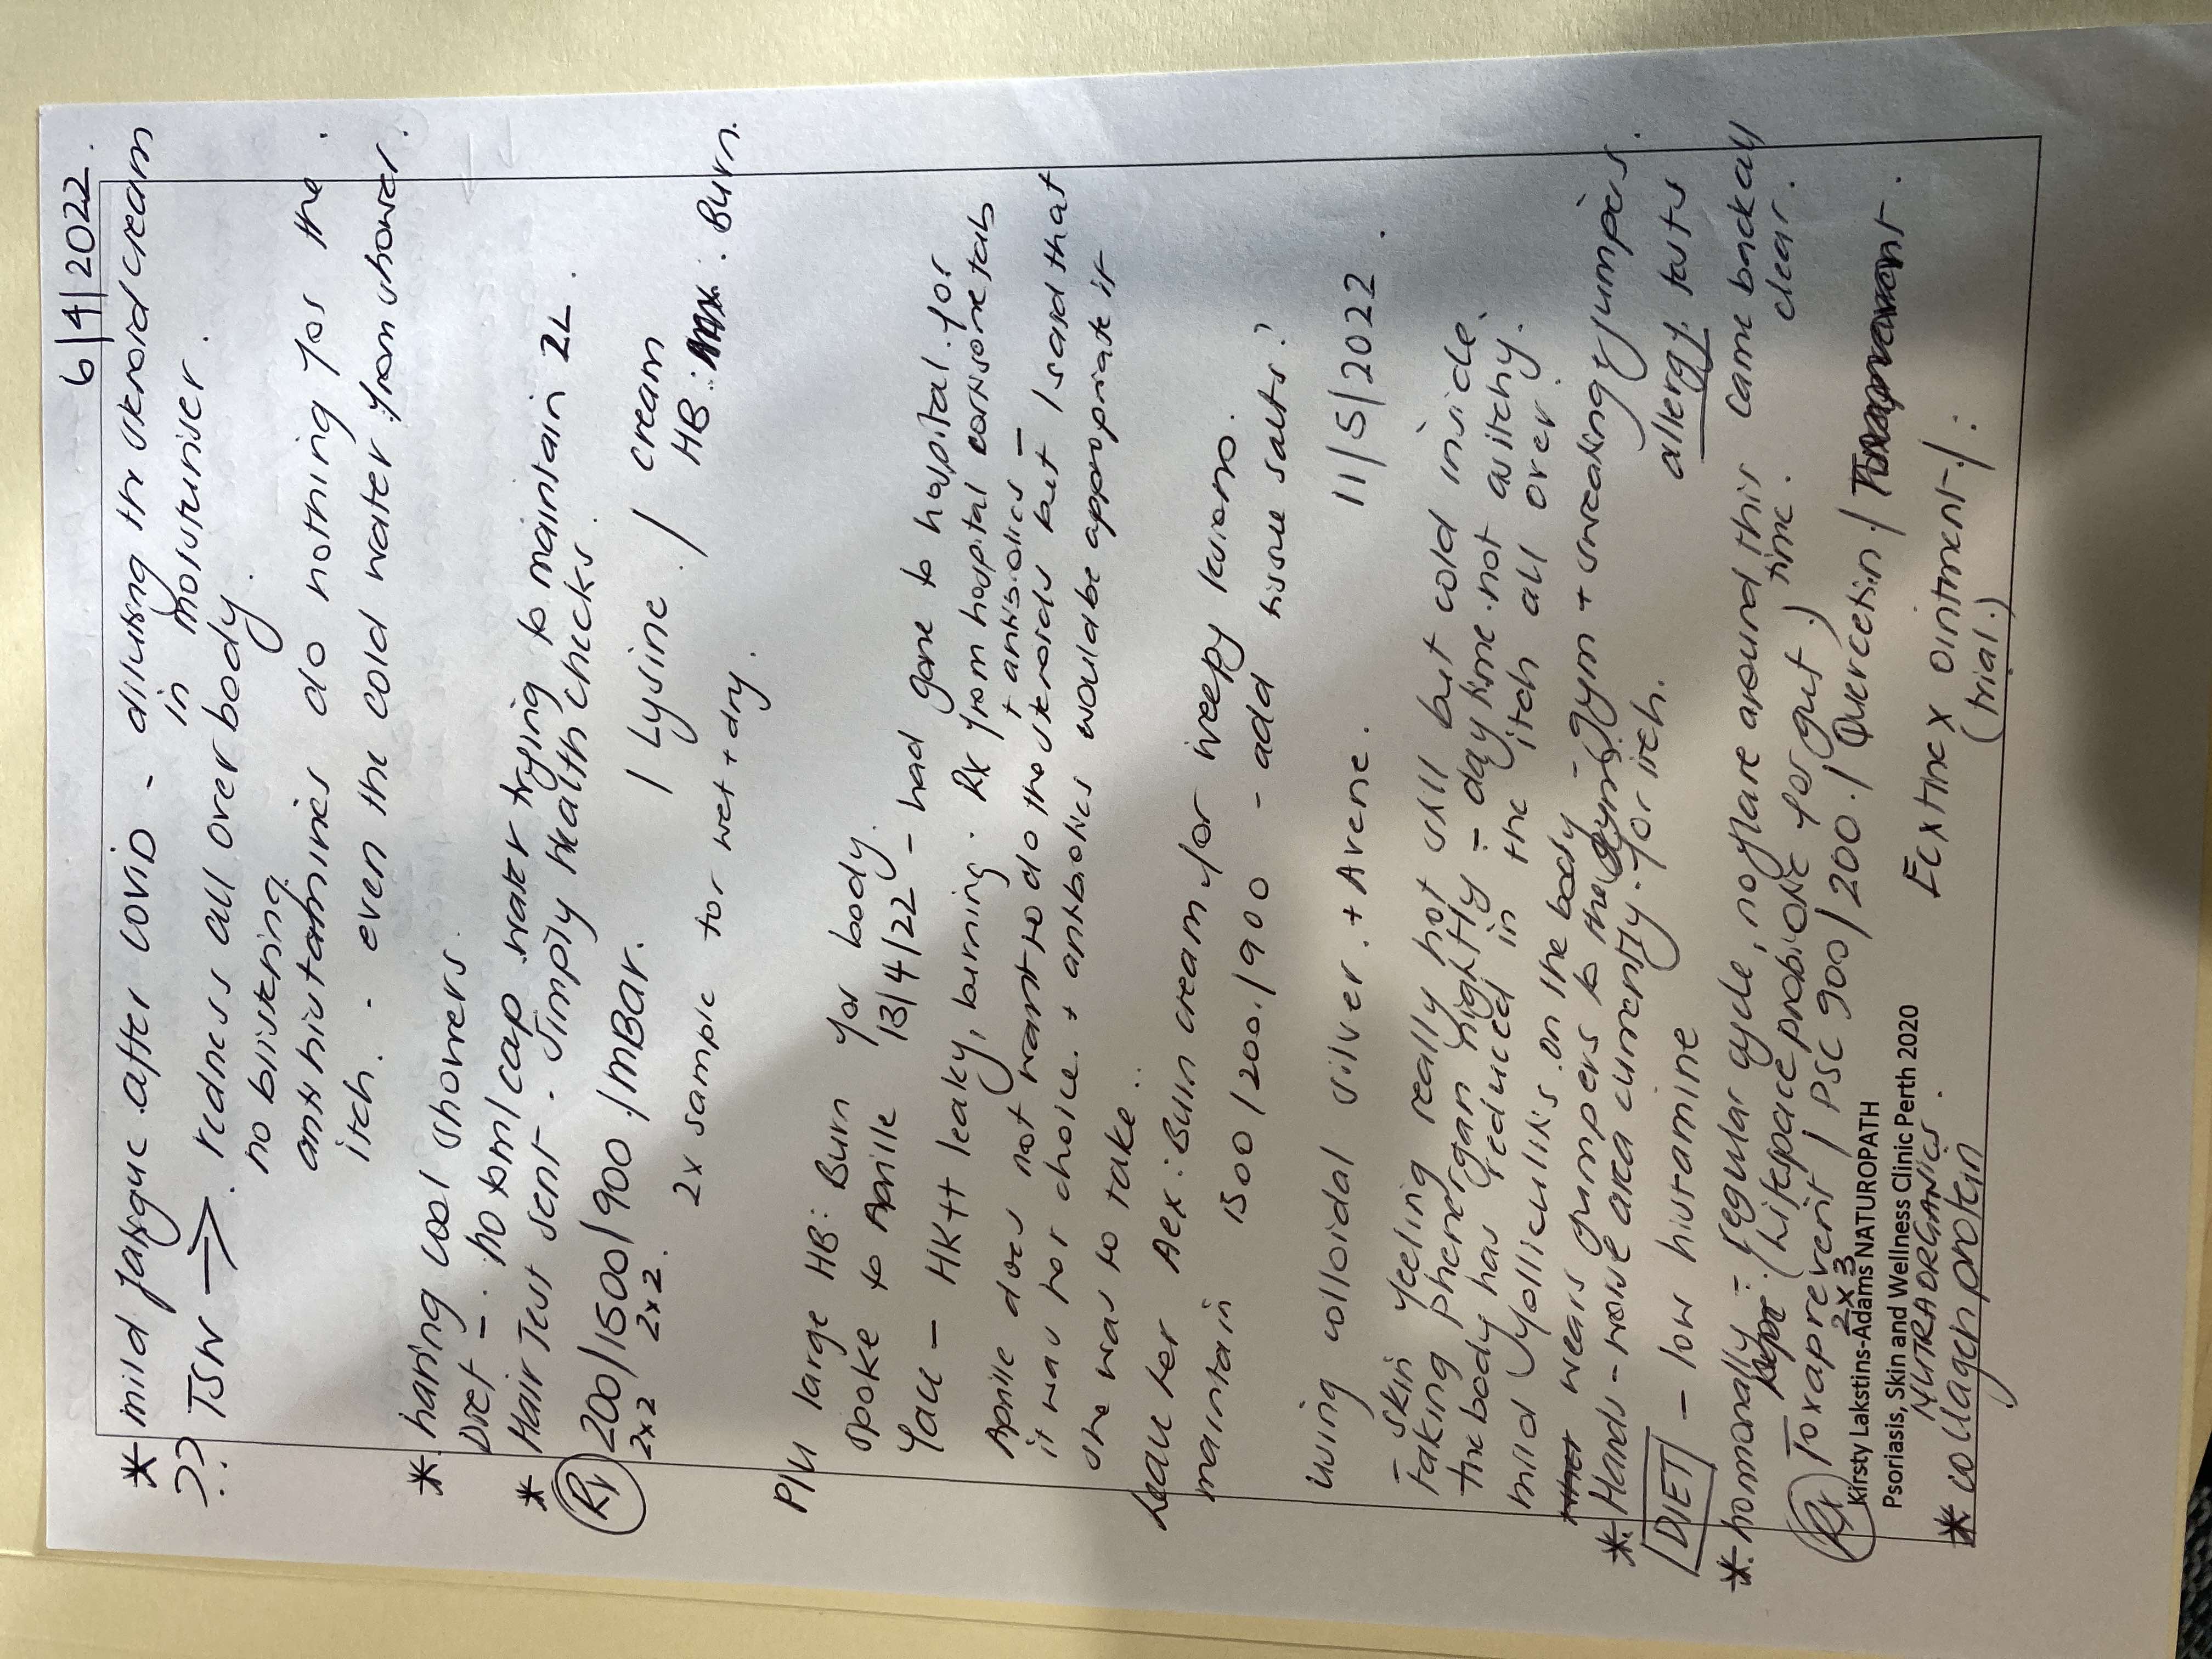 6/4/2022
* mild fatigue after COVID - diluting the steroid cream
in moisturiser.
?? TSW → redness all over body.
no blistering.
antihistamines do nothing for the
itch. - even the cold water from shower.
* having cool showers.
Diet - no tap water trying to maintain 2L.
* Hair Test sent. Simply health checks
Rx 200/1500/900./MBar. / Lysine./ cream
2x2 2x2.
HB: Burn.
2x sample for wet + dry.
P/U large HB: Burn for body.
spoke to Aprille 13/4/22 - had gone to hospital for
- HK++ leaky, burning. Rx from hospital cortisone tabs
+ antibiotics -
Aprille does not want to do the steroids but I said that
it was her choice + antibiotics would be appropriate if
she was to take..
Aex: Burn cream for weepy lesions.
maintain 1500/200./900 - add tissue salts?
using colloidal silver. + Avene. 11/5/2022.
- skin feeling really hot still but cold inside.
- Taking phenergan nightly - daytime not as itchy.
the body has reduced in the itch all over.
mild folliculitis on the body -
wears jumpers to the gym - gym + sweaking jumpers.
* Hands - worse area currently. for itch.
DIET - low histamine allergy tests
* hormonally - regular cycle, no flare around this time. came back all clear.
(Lifespace probiotic for gut.)
Rx Toxaprevent / PSC 900/200./Quercetin./
2x3
Kirsty Lakstins-Adams NATUROPATH
Psoriasis, Skin and Wellness Clinic Perth 2020
Ecxtinex ointment./:
(trial.)
NUTRAORGANICS.
* collagen protein